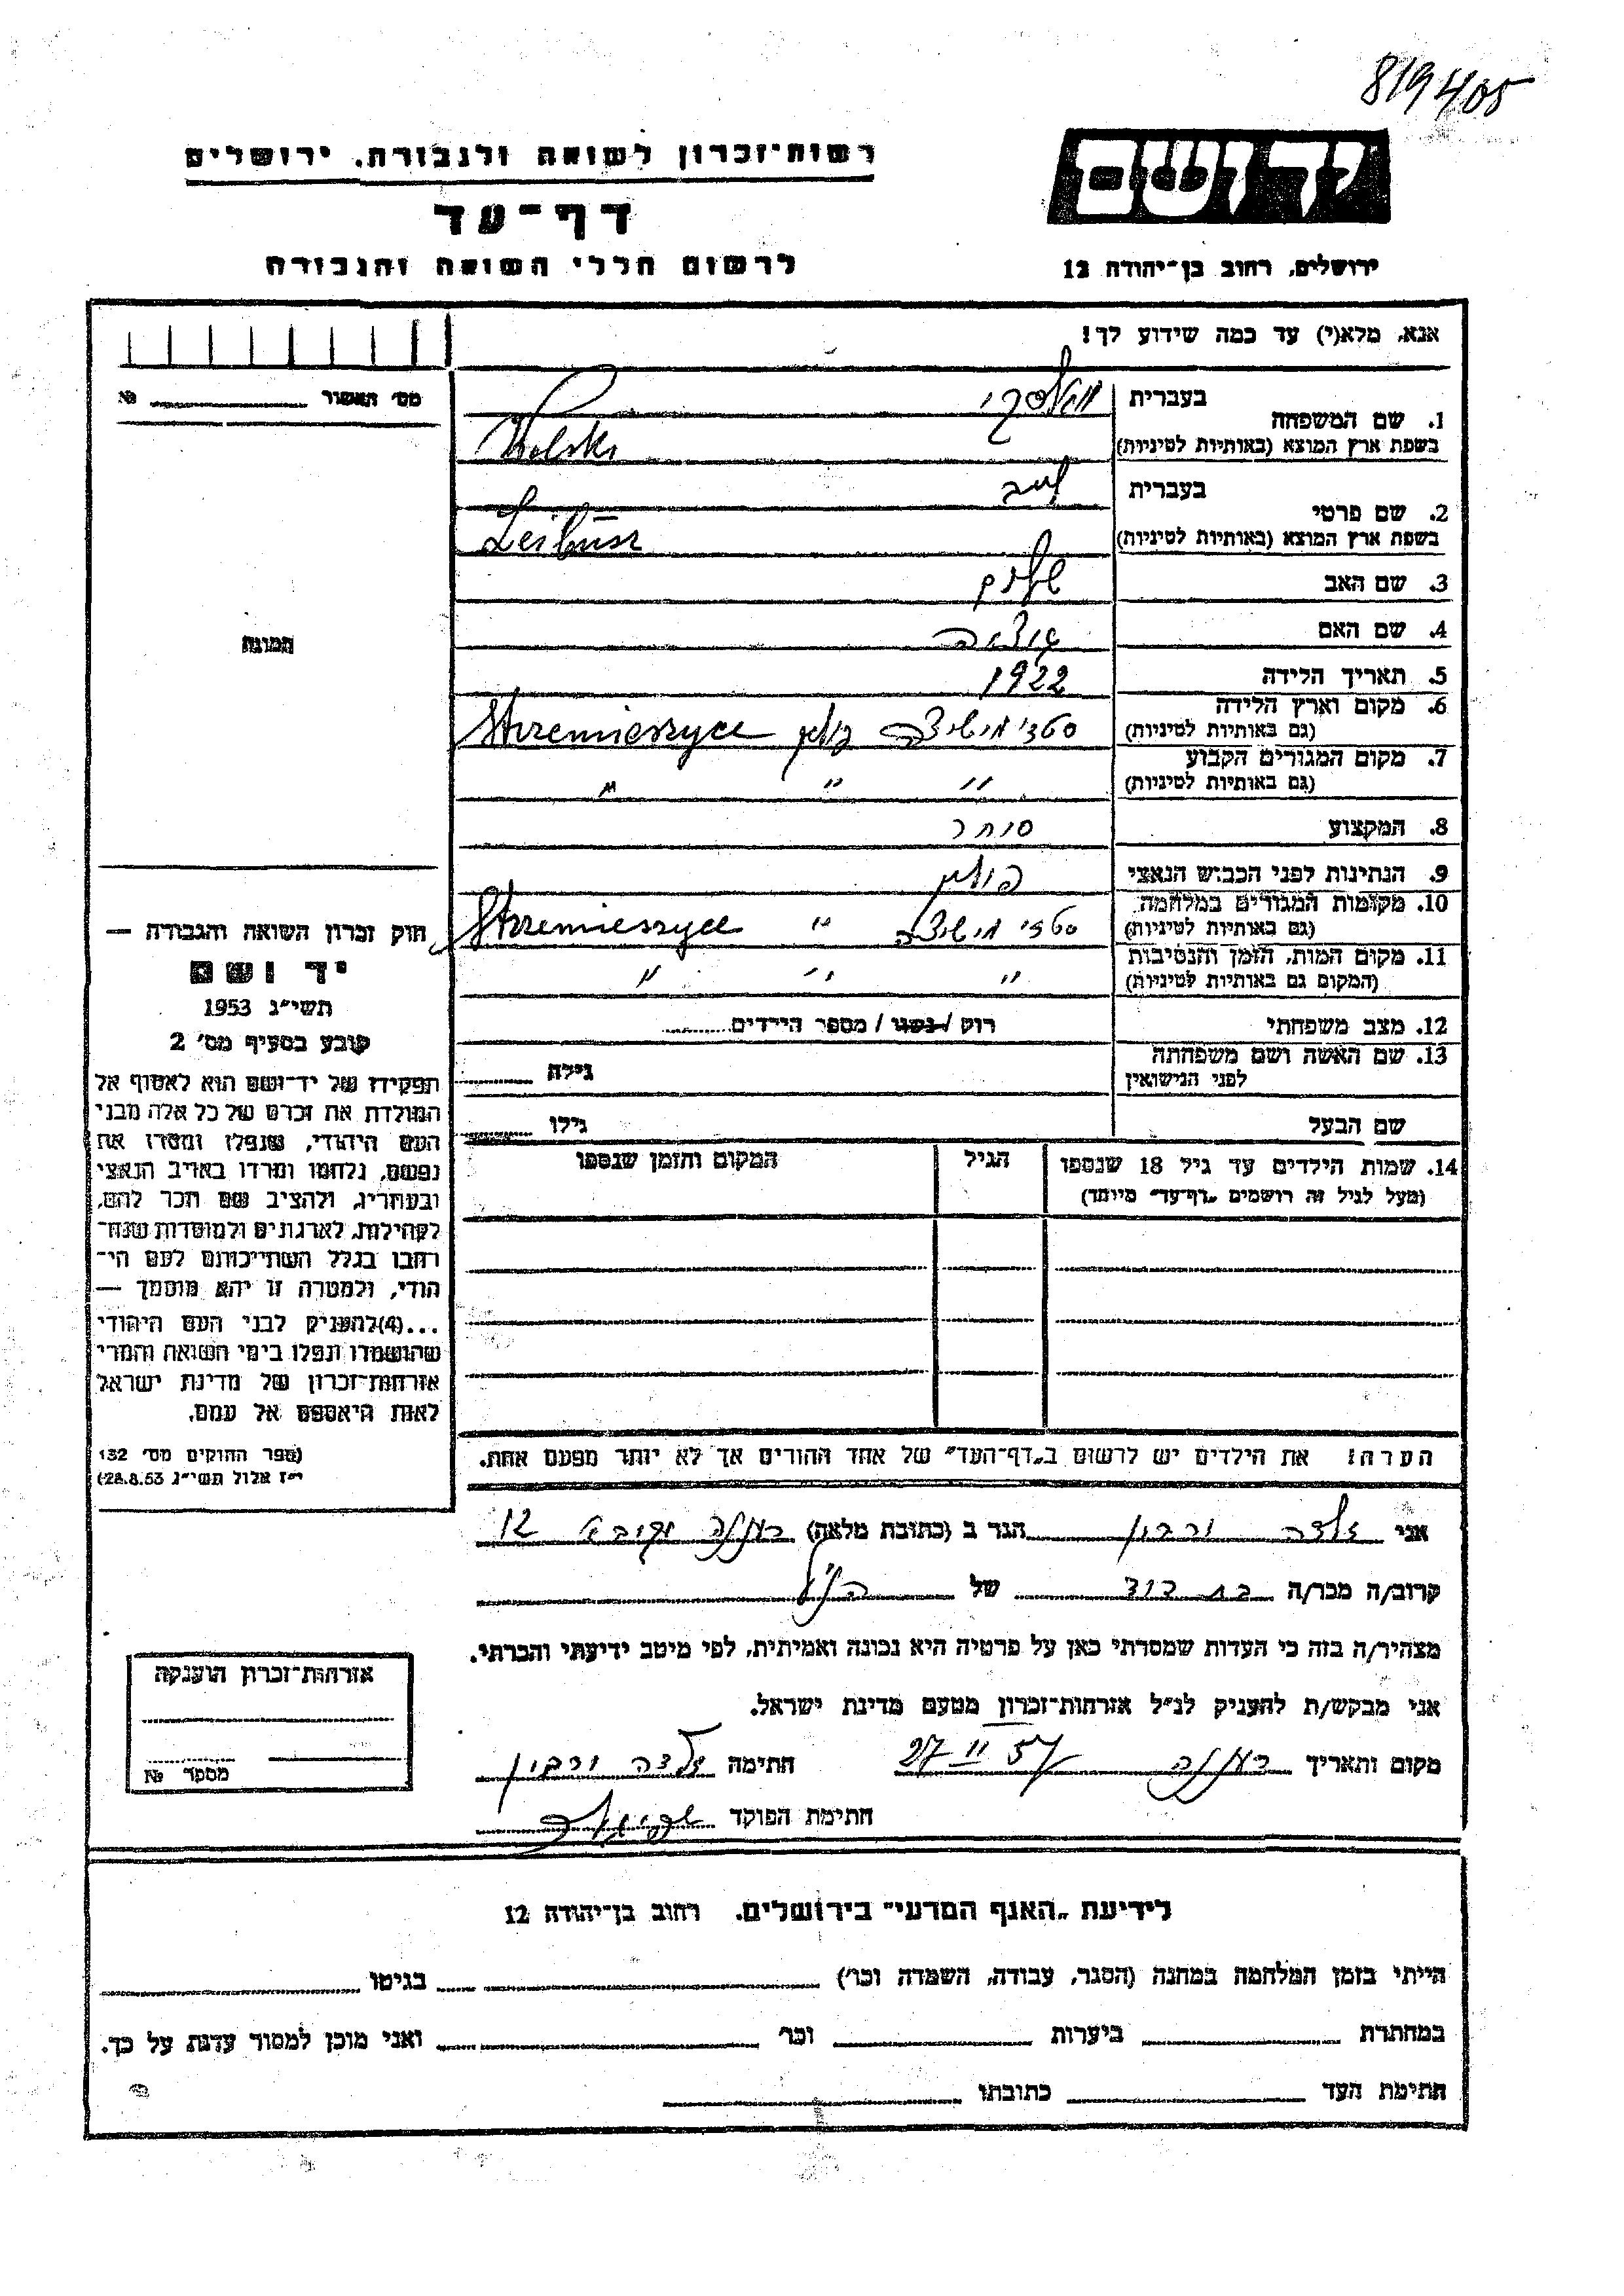 819405
רשות־זכרון לשואה ולגבורה, ירושלים
יד ושם
דף־עד
לרשום חללי השואה והגבורה
ירושלים, רחוב בן־יהודה 12
אנא, מלא(י) עד כמה שידוע לך!
מס' האשור № 
1. שם המשפחה בעברית וולסקי
בשפת ארץ המוצא (באותיות לטיניות) Wolski
2. שם פרטי בעברית לייב
בשפת ארץ המוצא (באותיות לטיניות) Leibusz
3. שם האב שלום
4. שם האם
5. תאריך הלידה 1922
6. מקום וארץ הלידה (גם באותיות לטיניות) פולין Strzemieszyce
7. מקום המגורים הקבוע (גם באותיות לטיניות) " " "
8. המקצוע סוחר
9. הנתינות לפני הכבוש הנאצי פולין
10. מקומות המגורים במלחמה (גם באותיות לטיניות) " Strzemieszyce
11. מקום המות, הזמן והנסיבות (המקום גם באותיות לטיניות) " " "
12. מצב משפחתי רוק / נשוי / מספר הילדים
13. שם האשה ושם משפחתה לפני הנישואין גילה
שם הבעל גילו
14. שמות הילדים עד גיל 18 שנספו הגיל המקום והזמן שנספו
(מעל לגיל זה רושמים "דף־עד" מיוחד)
הערה: את הילדים יש לרשום ב"דף־העד" של אחד ההורים אך לא יותר מפעם אחת.
תמונה
חוק זכרון השואה והגבורה —
יד ושם
תשי"ג 1953
קובע בסעיף מס' 2
תפקידו של יד־ושם הוא לאסוף אל
המולדת את זכרם של כל אלה מבני
העם היהודי, שנפלו ומסרו את
נפשם, נלחמו ומרדו באויב הנאצי
ובעוזריו, ולהציב שם וזכר להם,
לקהילות, לארגונים ולמוסדות שנח־
רבו בגלל השתייכותם לעם הי־
הודי, ולמטרה זו יהא מוסמך —
...(4)להעניק לבני העם היהודי
שהושמדו ונפלו בימי השואה והמרי
אזרחות־זכרון של מדינת ישראל
לאות היאספם אל עמם.
(ספר החוקים מס' 132
י"ז אלול תשי"ג 28.8.53)
אני זלדה ורבין הגר ב (כתובת מלאה) רעננה 12
קרוב/ה מכר/ה בת דוד של הנ"ל
מצהיר/ה בזה כי העדות שמסרתי כאן על פרטיה היא נכונה ואמיתית, לפי מיטב ידיעתי והכרתי.
אני מבקש/ת להעניק לנ"ל אזרחות־זכרון מטעם מדינת ישראל.
מקום ותאריך רעננה 27 II 57 חתימה זלדה ורבין
חתימת הפוקד
אזרחות־זכרון הוענקה
מספר №
לידיעת "האגף המדעי" בירושלים. רחוב בן־יהודה 12
הייתי בזמן המלחמה במחנה (הסגר, עבודה, השמדה וכר) בגיטו
במחתרת ביערות וכר ואני מוכן למסור עדות על כך.
חתימת העד כתובתו